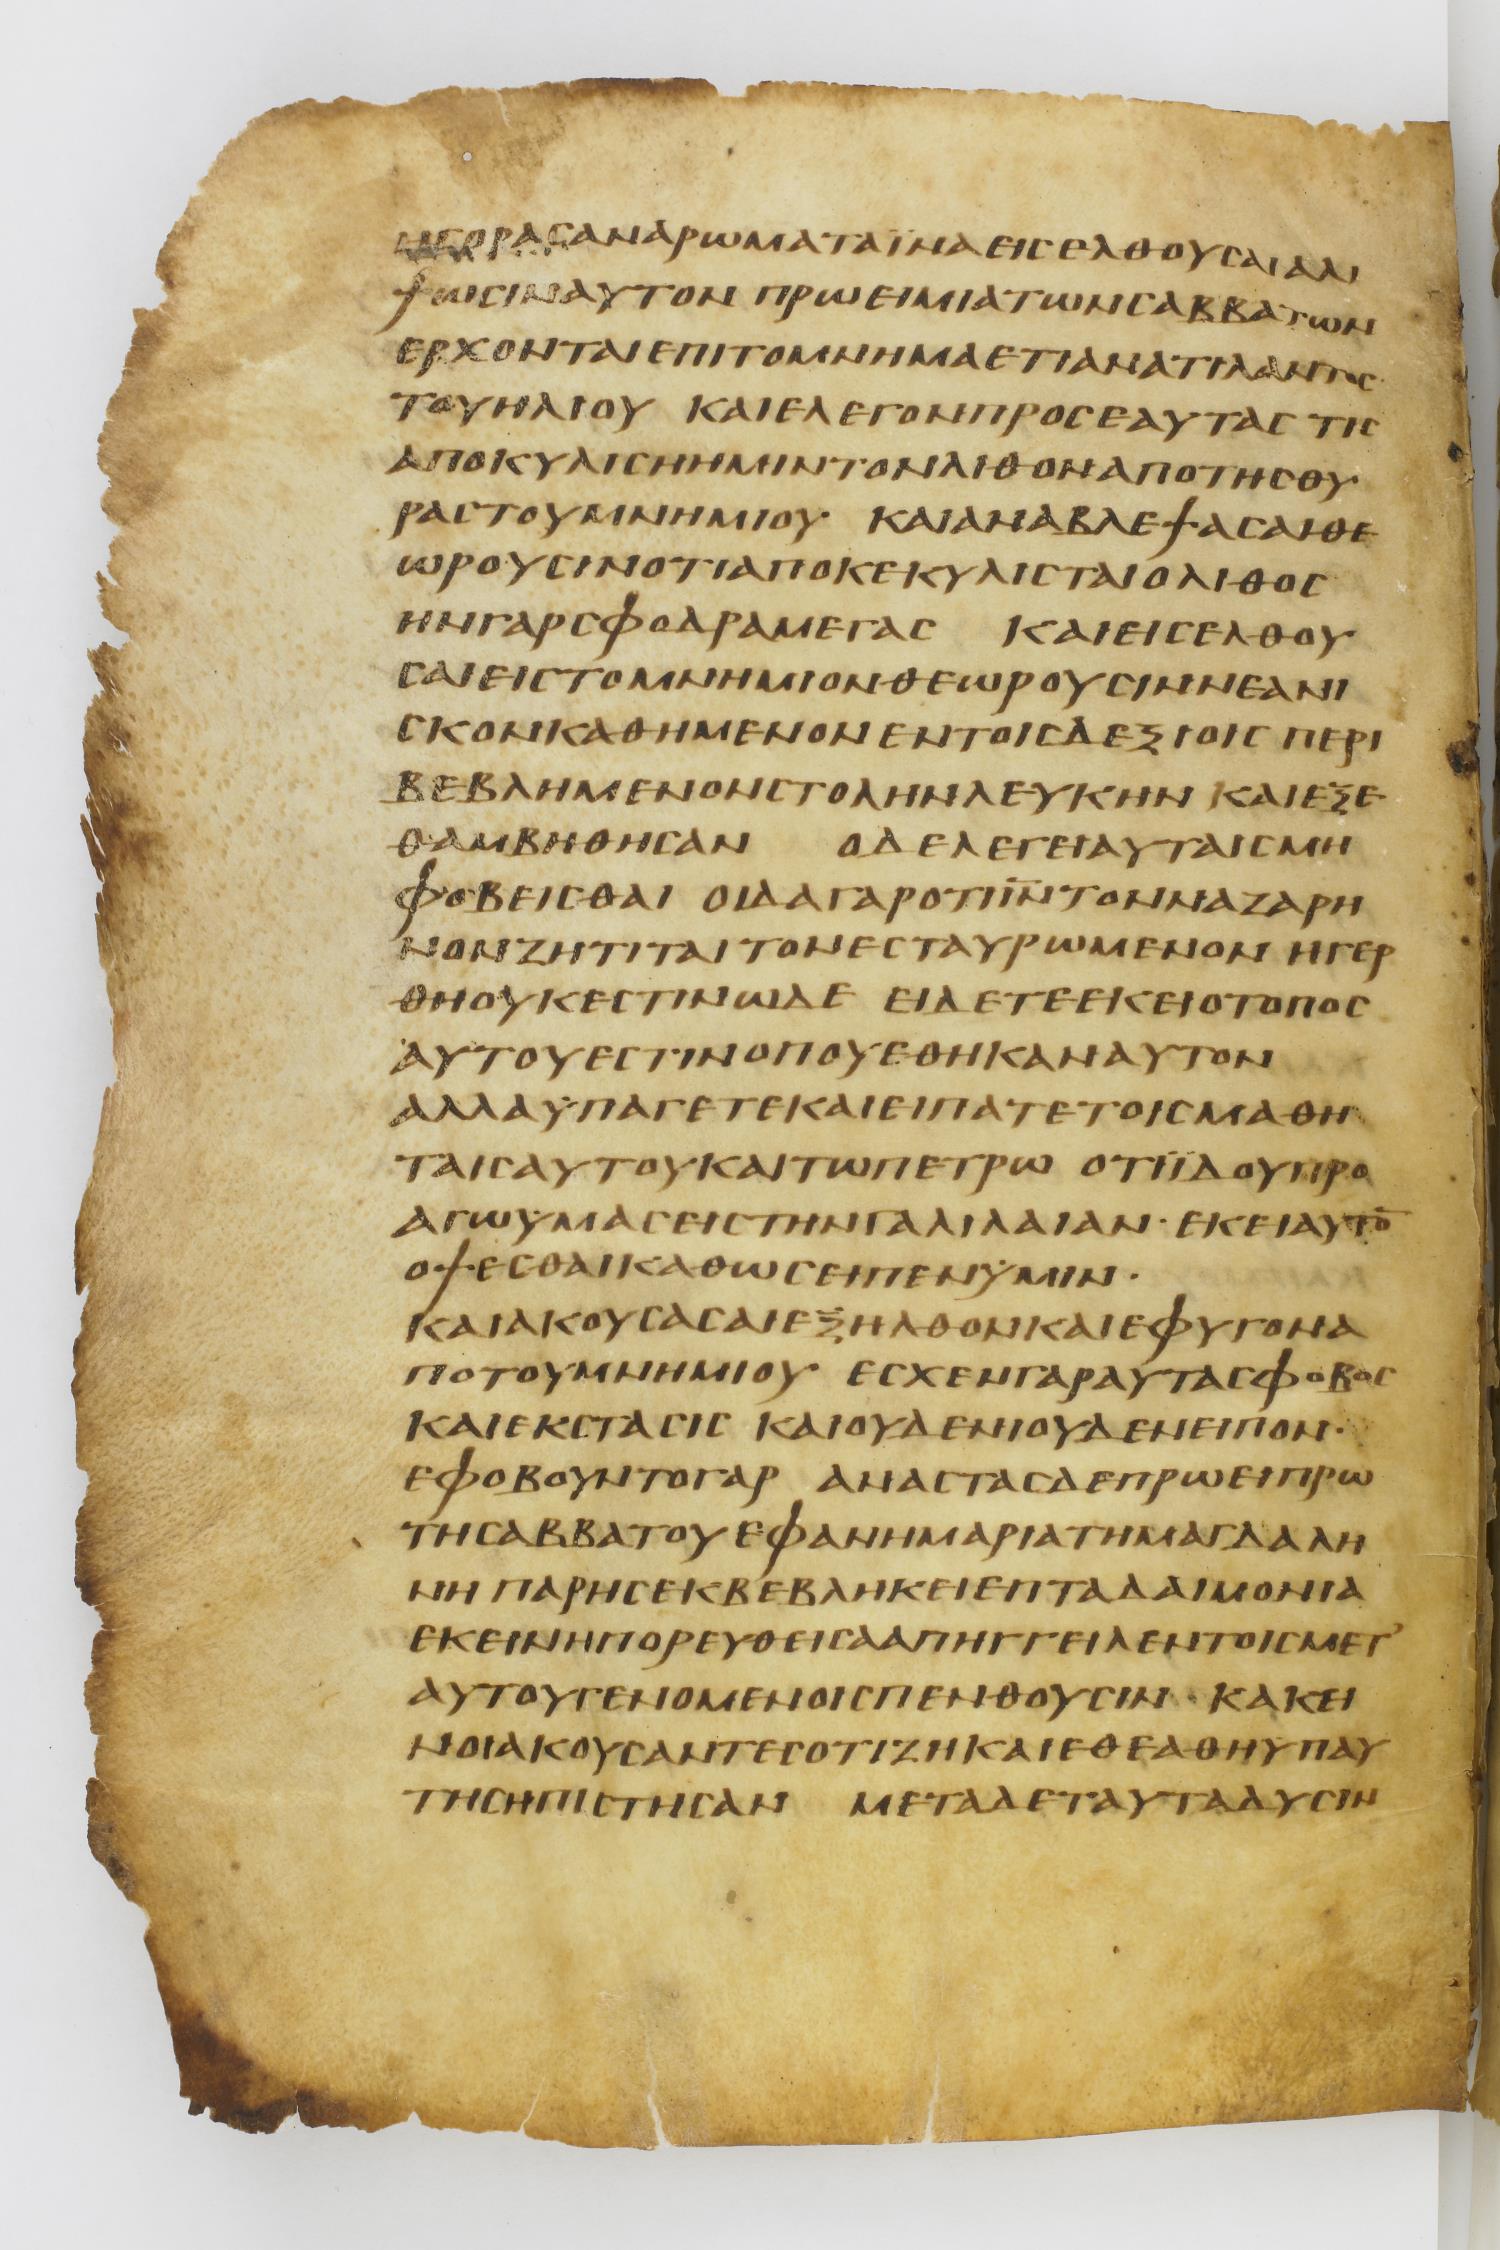 ΗΓΟΡΑϹΑΝΑΡΩΜΑΤΑΪΝΑΕΙϹΕΛΘΟΥϹΑΙΑΛΙ
ΨΩϹΙΝΑΥΤΟΝ ΠΡΩΕΙΜΙΑΤΩΝϹΑΒΒΑΤΩΝ
ΕΡΧΟΝΤΑΙΕΠΙΤΟΜΝΗΜΑΕΤΙΑΝΑΤΙΛΑΝΤΟϹ
ΤΟΥΗΛΙΟΥ ΚΑΙΕΛΕΓΟΝΠΡΟϹΕΑΥΤΑϹ ΤΙϹ
ΑΠΟΚΥΛΙϹΗΗΜΙΝΤΟΝΛΙΘΟΝΑΠΟΤΗϹΘΥ
ΡΑϹΤΟΥΜΝΗΜΙΟΥ ΚΑΙΑΝΑΒΛΕΨΑϹΑΙΘΕ
ΩΡΟΥϹΙΝΟΤΙΑΠΟΚΕΚΥΛΙϹΤΑΙΟΛΙΘΟϹ
ΗΝΓΑΡϹΦΟΔΡΑΜΕΓΑϹ ΚΑΙΕΙϹΕΛΘΟΥ
ϹΑΙΕΙϹΤΟΜΝΗΜΙΟΝΘΕΩΡΟΥϹΙΝΝΕΑΝΙ
ϹΚΟΝΚΑΘΗΜΕΝΟΝΕΝΤΟΙϹΔΕΞΙΟΙϹ ΠΕΡΙ
ΒΕΒΛΗΜΕΝΟΝϹΤΟΛΗΝΛΕΥΚΗΝ ΚΑΙΕΞΕ
ΘΑΜΒΗΘΗϹΑΝ ΟΔΕΛΕΓΕΙΑΥΤΑΙϹΜΗ
ΦΟΒΕΙϹΘΑΙ ΟΙΔΑΓΑΡΟΤΙΙ̅Ν̅ΤΟΝΝΑΖΑΡΗ
ΝΟΝΖΗΤΙΤΑΙΤΟΝΕϹΤΑΥΡΩΜΕΝΟΝ ΗΓΕΡ
ΘΗΟΥΚΕϹΤΙΝΩΔΕ ΕΙΔΕΤΕΕΚΕΙΟΤΟΠΟϹ
ΑΥΤΟΥΕϹΤΙΝΟΠΟΥΕΘΗΚΑΝΑΥΤΟΝ
ΑΛΛΑΫΠΑΓΕΤΕΚΑΙΕΙΠΑΤΕΤΟΙϹΜΑΘΗ
ΤΑΙϹΑΥΤΟΥΚΑΙΤΩΠΕΤΡΩ ΟΤΙΪΔΟΥΠΡΟ
ΑΓΩΫΜΑϹΕΙϹΤΗΝΓΑΛΙΛΑΙΑΝ· ΕΚΕΙΑΥΤΟ̅
ΟΨΕϹΘΑΙΚΑΘΩϹΕΙΠΕΝΫΜΙΝ·
ΚΑΙΑΚΟΥϹΑϹΑΙΕΞΗΛΘΟΝΚΑΙΕΦΥΓΟΝΑ
ΠΟΤΟΥΜΝΗΜΙΟΥ ΕϹΧΕΝΓΑΡΑΥΤΑϹΦΟΒΟϹ
ΚΑΙΕΚϹΤΑϹΙϹ ΚΑΙΟΥΔΕΝΙΟΥΔΕΝΕΙΠΟΝ·
ΕΦΟΒΟΥΝΤΟΓΑΡ ΑΝΑϹΤΑϹΔΕΠΡΩΕΙΠΡΩ
ΤΗϹΑΒΒΑΤΟΥΕΦΑΝΗΜΑΡΙΑΤΗΜΑΓΔΑΛΗ
ΝΗ ΠΑΡΗϹΕΚΒΕΒΛΗΚΕΙΕΠΤΑΔΑΙΜΟΝΙΑ
ΕΚΕΙΝΗΠΟΡΕΥΘΕΙϹΑΑΠΗΓΓΕΙΛΕΝΤΟΙϹΜΕΤ’
ΑΥΤΟΥΓΕΝΟΜΕΝΟΙϹΠΕΝΘΟΥϹΙΝ· ΚΑΚΕΙ
ΝΟΙΑΚΟΥϹΑΝΤΕϹΟΤΙΖΗΚΑΙΕΘΕΑΘΗΥΠΑΥ
ΤΗϹΗΠΙϹΤΗϹΑΝ ΜΕΤΑΔΕΤΑΥΤΑΔΥϹΙΝ